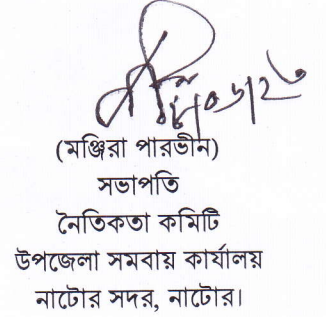 (মঞ্জিরা পারভীন)
সভাপতি
নৈতিকতা কমিটি
উপজেলা সমবায় কার্যালয়
নাটোর সদর, নাটোর।